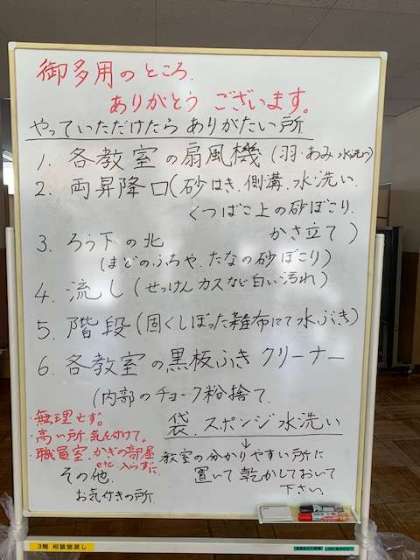 御多用のところ、
ありがとう ございます。
やっていただけたら ありがたい所
1. 各教室の扇風機(羽・あみ 水洗い)
2. 両昇降口(砂はき、側溝、水洗い、
くつばこ上の砂ぼこり、
かさ立て)
3. ろう下の北
(まどのふちや、たなの砂ぼこり)
4. 流し(せっけんカスなど白い汚れ)
5. 階段(固くしぼった雑布にて水ぶき)
6. 各教室の黒板ふき クリーナー
(内部のチョーク粉捨て、
袋、スポンジ水洗い
↓
教室の分かりやすい所に
置いて乾かしておいて
下さい。
・無理せず。
・高い所 気を付けて。
・職員室、かぎの部屋
etc 入らずに
その他、
お気付きの所
3階 相談室前し